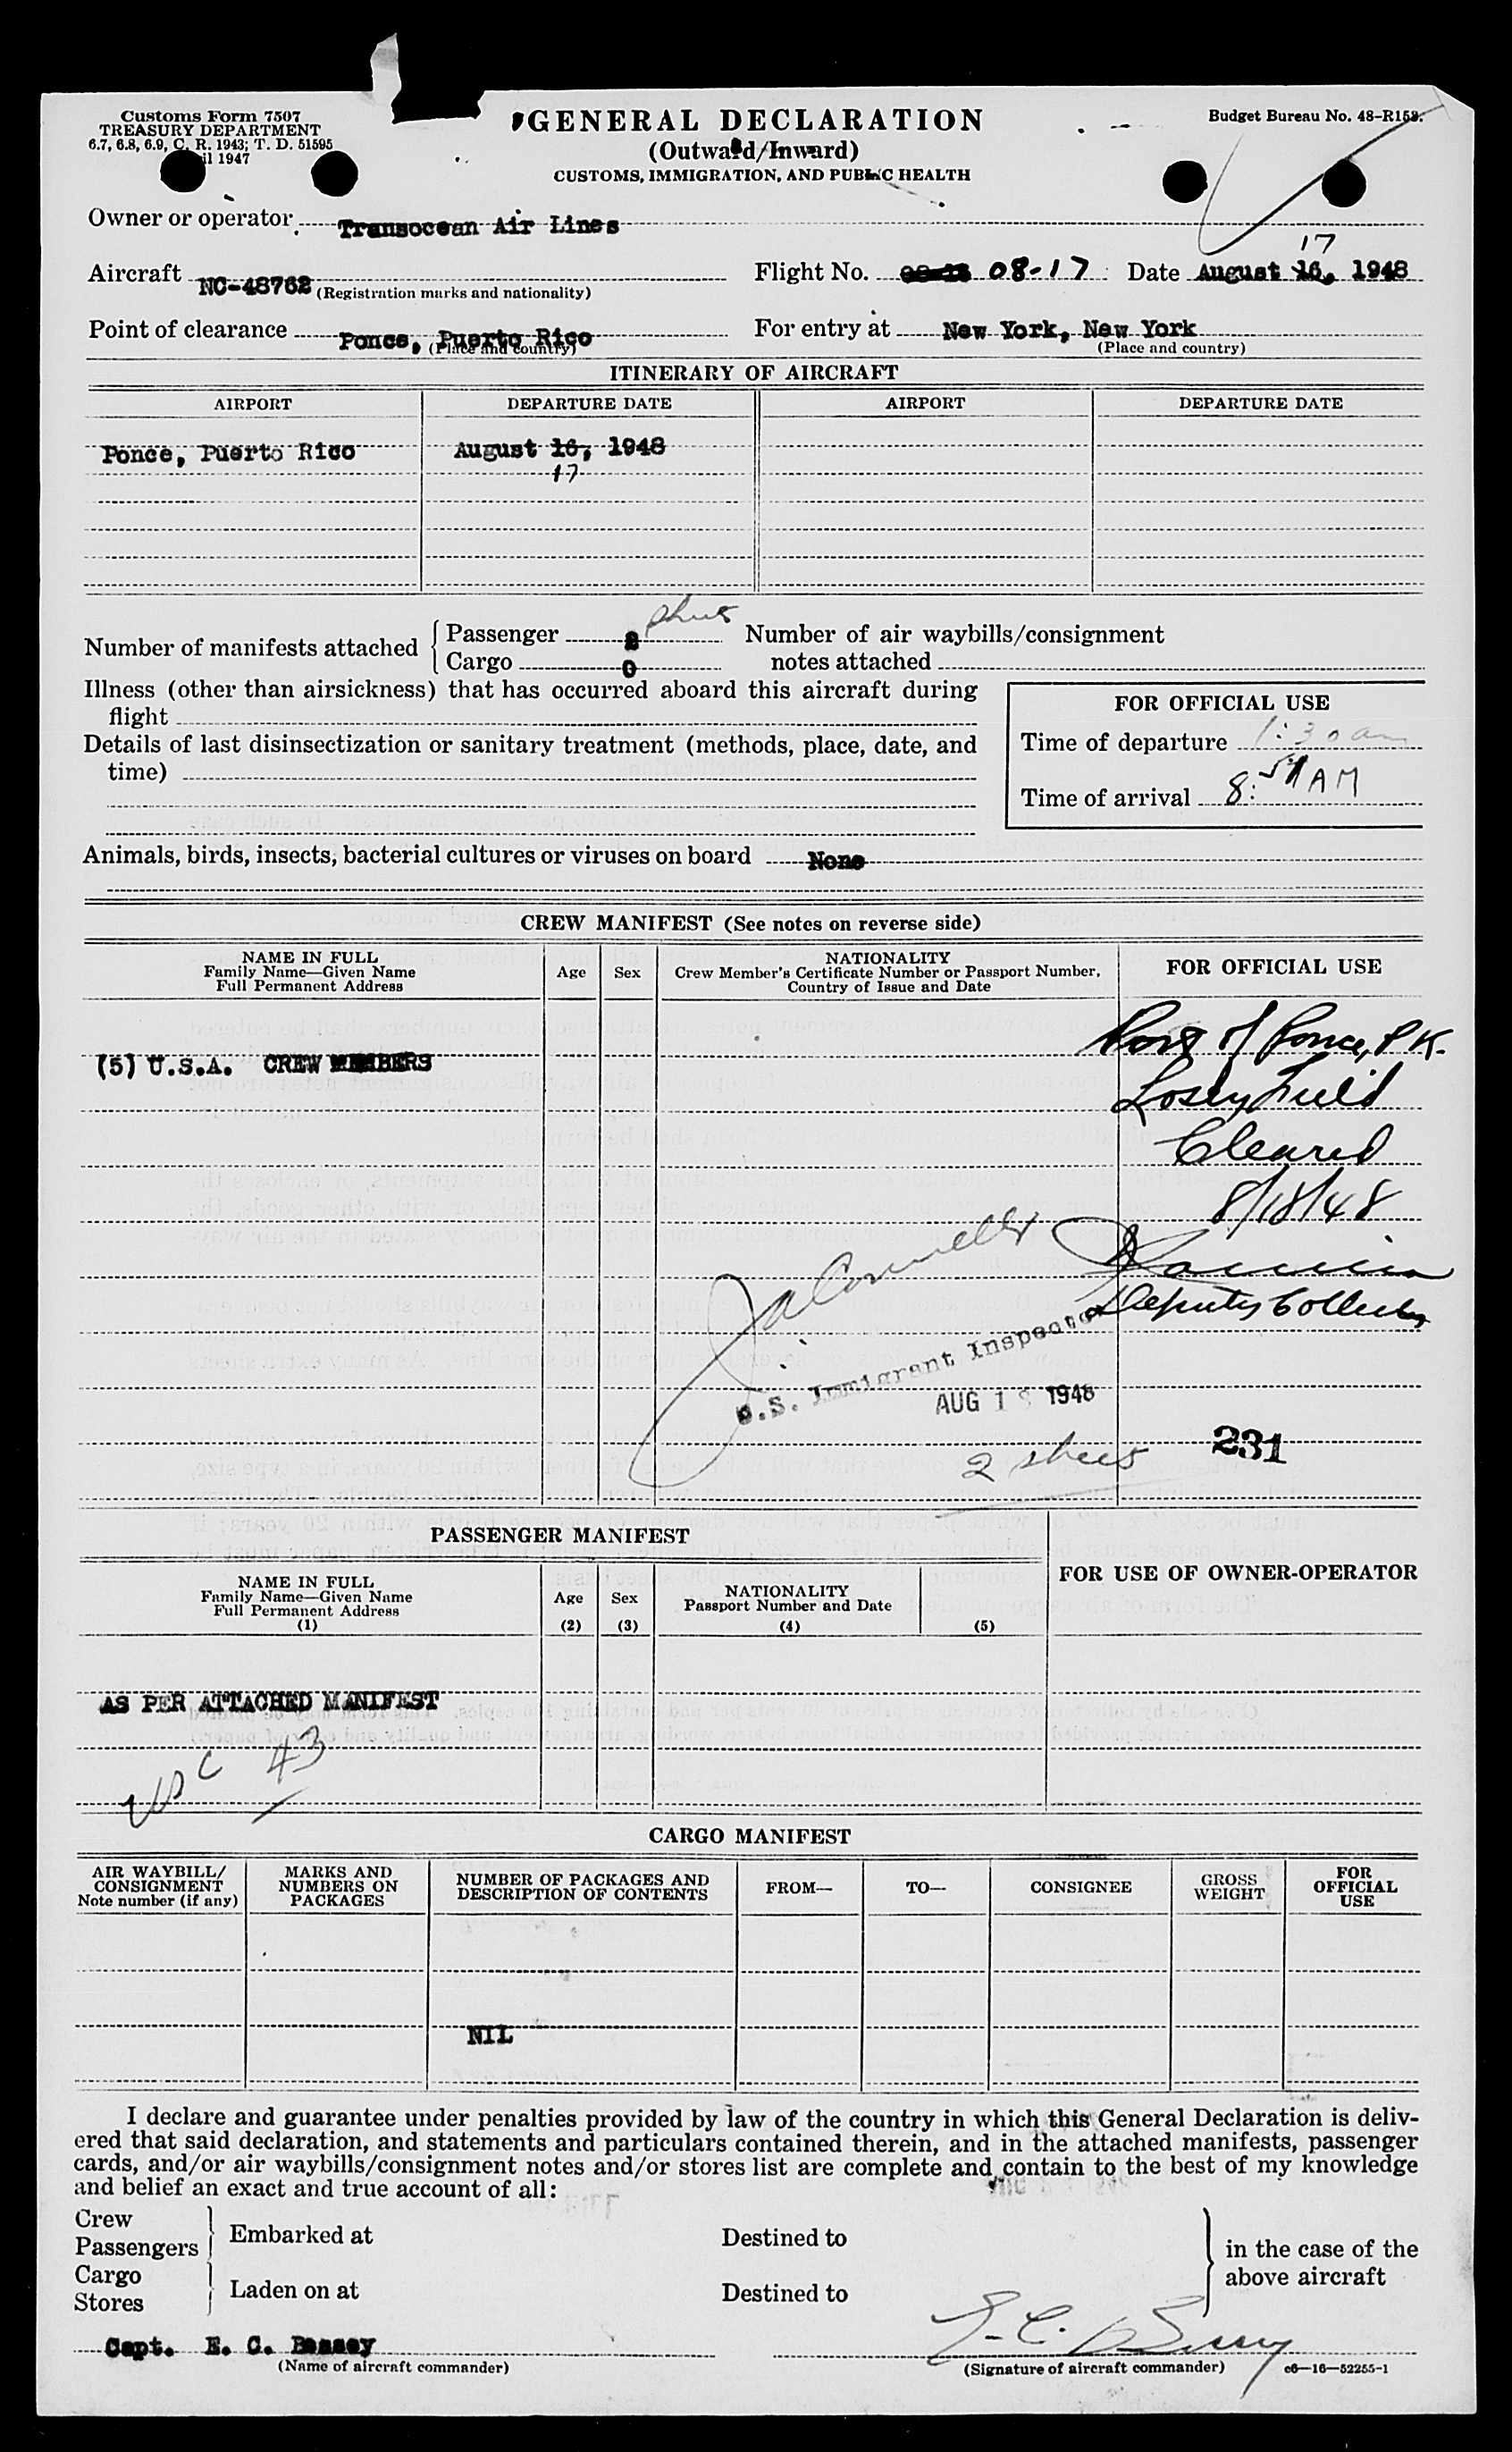 Customs Form 7507
TREASURY DEPARTMENT
6.7, 6.8, 6.9, C. R. 1943; T. D. 51595
1947
GENERAL DECLARATION
(Outward/Inward)
CUSTOMS, IMMIGRATION, AND PUBLIC HEALTH
Budget Bureau No. 48-R152.
Owner or operator Transocean Air Lines
17
Aircraft NC-48762 Flight No. 08-17 Date August 16, 1948
(Registration marks and nationality)
Point of clearance Ponce, Puerto Rico For entry at New York, New York
(Place and country) (Place and country)
ITINERARY OF AIRCRAFT
AIRPORT DEPARTURE DATE AIRPORT DEPARTURE DATE
Ponce, Puerto Rico August 16, 1948
17
Number of manifests attached Passenger 2 sheets Number of air waybills/consignment
Cargo 0 notes attached
Illness (other than airsickness) that has occurred aboard this aircraft during
flight
FOR OFFICIAL USE
Time of departure 1:30 am
Details of last disinsectization or sanitary treatment (methods, place, date, and
time)
Time of arrival 8: AM
Animals, birds, insects, bacterial cultures or viruses on board None
CREW MANIFEST (See notes on reverse side)
NAME IN FULL
Family Name—Given Name
Full Permanent Address
Age Sex
NATIONALITY
Crew Member's Certificate Number or Passport Number,
Country of Issue and Date
FOR OFFICIAL USE
(5) U.S.A. CREW MEMBERS
Port of Ponce, P.R.
Losey Field
Cleared
8/18/48
Deputy Collector
U.S. Immigrant Inspector
AUG 1 1948
2 sheets
231
PASSENGER MANIFEST
FOR USE OF OWNER-OPERATOR
NAME IN FULL
Family Name—Given Name
Full Permanent Address
(1)
Age
(2)
Sex
(3)
NATIONALITY
Passport Number and Date
(4) (5)
AS PER ATTACHED MANIFEST
USC 43
CARGO MANIFEST
AIR WAYBILL/
CONSIGNMENT
Note number (if any)
MARKS AND
NUMBERS ON
PACKAGES
NUMBER OF PACKAGES AND
DESCRIPTION OF CONTENTS
FROM—
TO—
CONSIGNEE
GROSS
WEIGHT
FOR
OFFICIAL
USE
NIL
I declare and guarantee under penalties provided by law of the country in which this General Declaration is deliv-
ered that said declaration, and statements and particulars contained therein, and in the attached manifests, passenger
cards, and/or air waybills/consignment notes and/or stores list are complete and contain to the best of my knowledge
and belief an exact and true account of all:
Crew
Passengers
Embarked at Destined to
in the case of the
above aircraft
Cargo
Stores
Laden on at Destined to
Capt. E. C. Bessey
(Name of aircraft commander)
E. C. Bessey
(Signature of aircraft commander) c6—16—52255-1